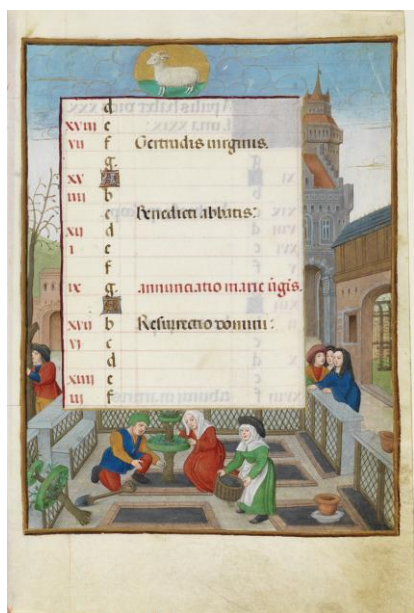 d
xviii e
vii f Gertrudis virginis.
g
xv A
iiii b
c Benedicti abbatis:
xii d
i e
f
ix g annunciatio marie v̄gis.
A
xvii b Resurrectio domini:
vi c
d
xiiii e
iii f